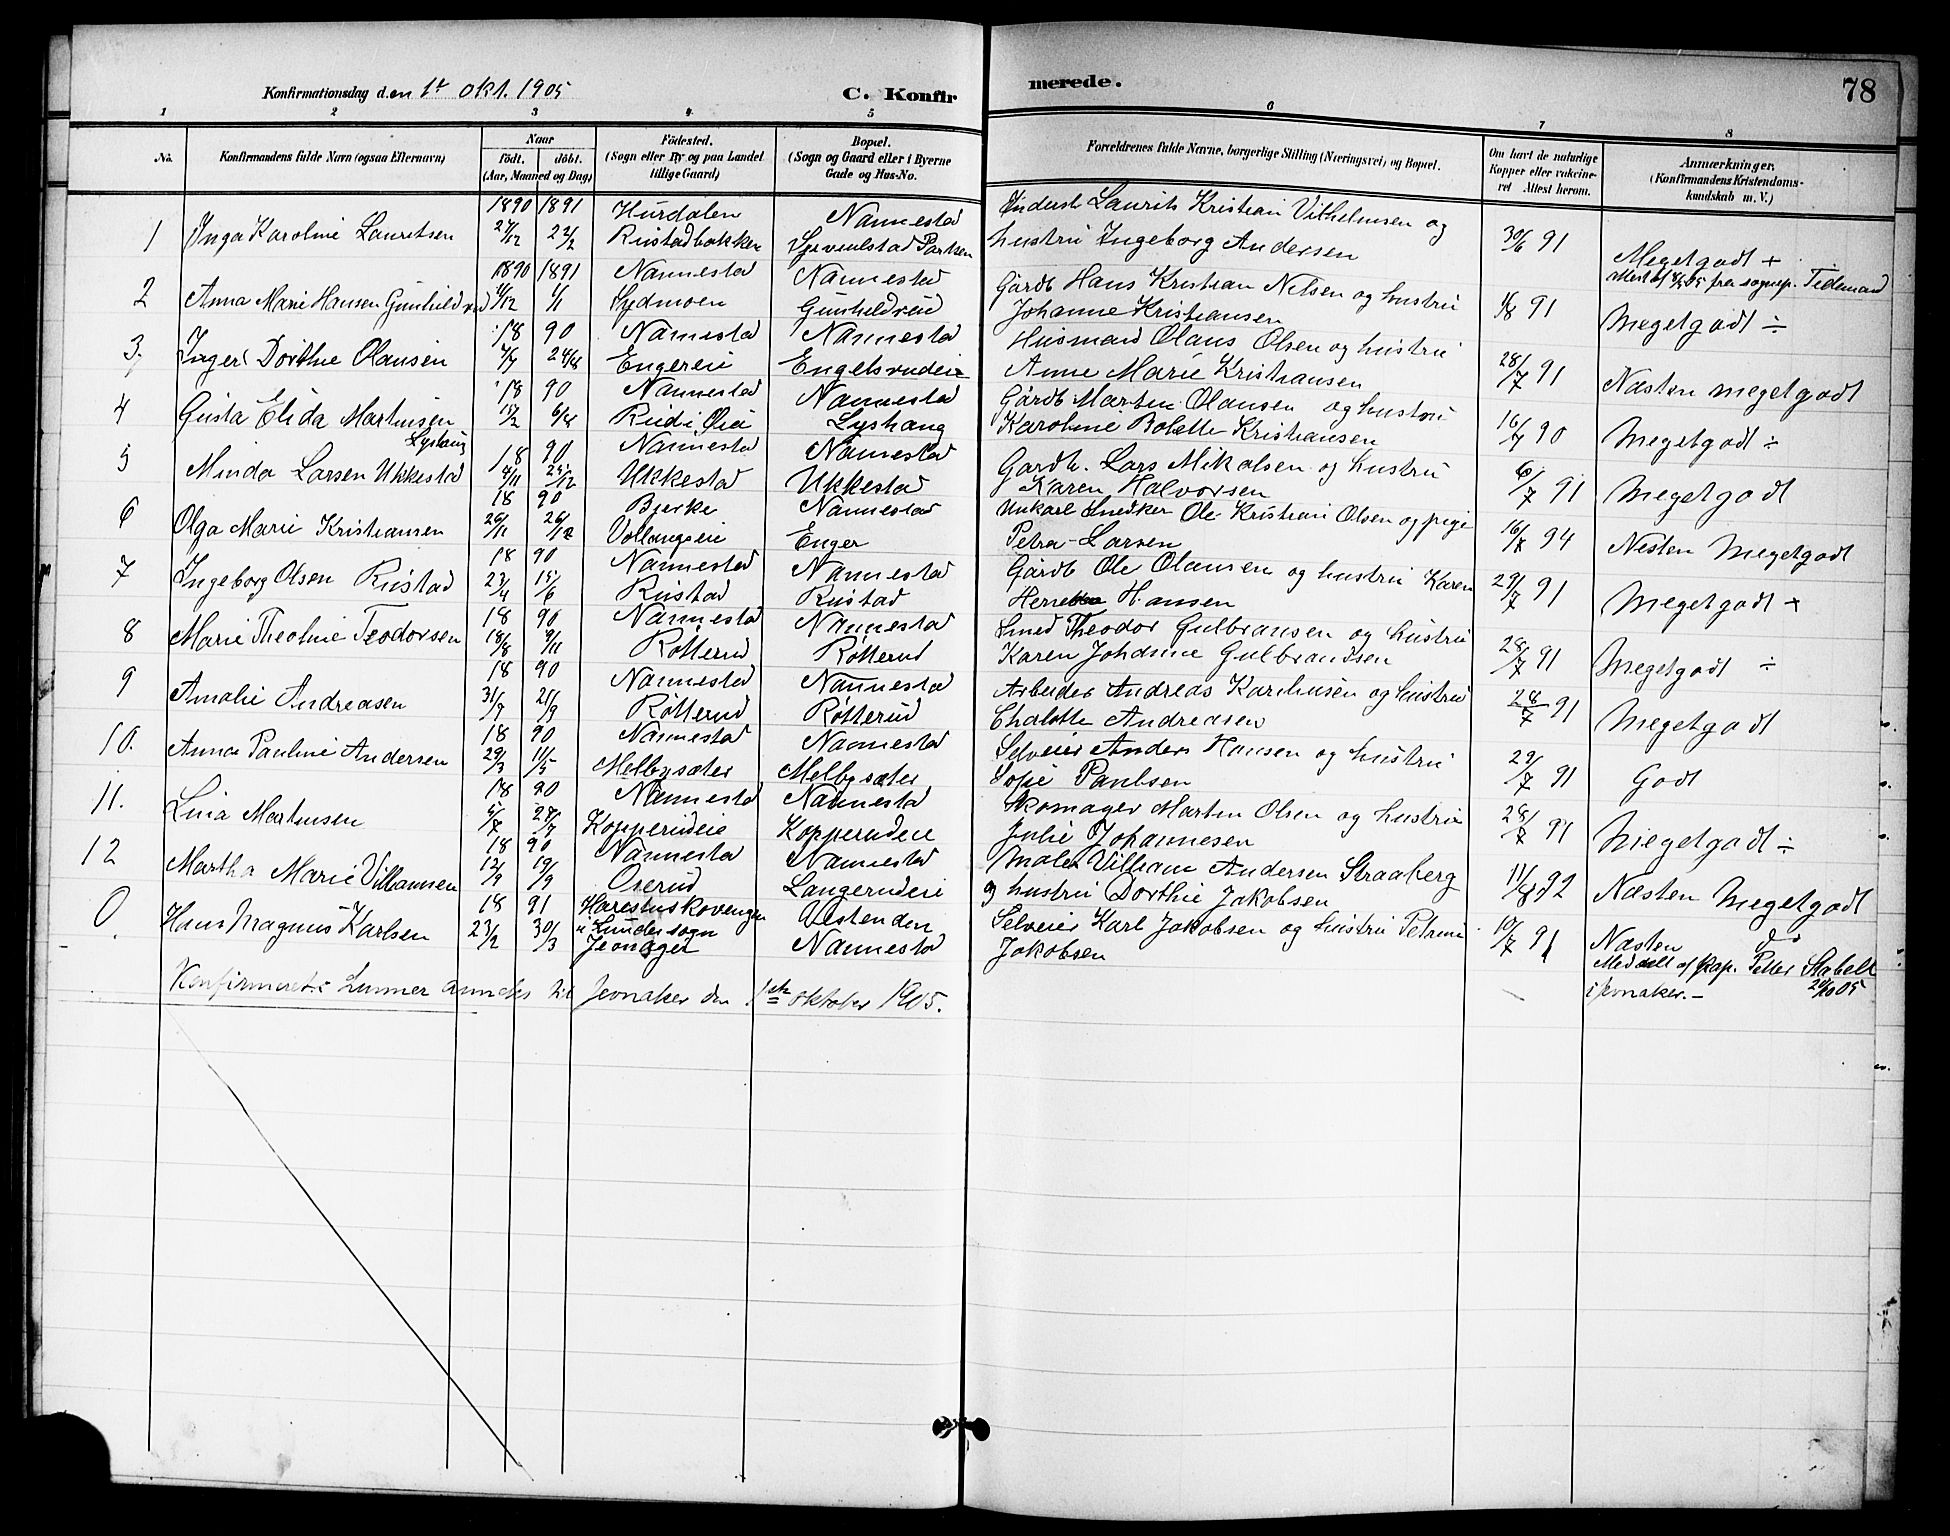 Konfirmationsdag den 1ste okt. 1905
C. Konfirmerede.
78
1 2 3 4 5 6 7 8
No. Konfirmandens fulde Navn (ogsaa Efternavn) Naar födt. döbt. (Aar, Maaned og Dag) Födested. (Sogn eller By og paa Landet tillige Gaard) Bopæl. (Sogn og Gaard eller i Byerne Gade og Hus-No. Forældrenes fulde Navne, borgerlige Stilling (Næringsvei) og Bopæl. Om havt de naturlige Kopper eller vakcineret Attest herom. Anmærkninger. (Konfirmandens Kristendomskundskab m. V.)
1890 1891 Hurdalen Nannestad Laurits Kristian Vilhelmsen og
1 Inga Karoline Lauritsen 27/12 22/2 Rustadbakken hustru Ingeborg Andersen 30/6 91 Megetgodt +
1890 1891 Nannestad Nannestad Gårdb Hans Kristian Nilsen og hustru fra sognep. Tideman
2 Anna Marie Hansen Gunhildrud 11/12 1/1 Sydmoen Gunhildrud Johanne Kristiansen 91 Megetgodt ÷
18 90 Nannestad Nannestad Husmand Olaus Olsen og hustru
3. Inger Dorthe Olausen 7/7 24/8 Engereie Engelsrudeie Anne Marie Kristiansen 28/7 91 Næsten megetgodt
18 90 Nannestad Nannestad Gårdb Martin Olausen og hustru
4 Gusta Elida Martinsen Lyshaug 6/4 Lyshaug Karoline Bolette Kristiansen 16/7 90 Megetgodt ÷
18 90 Nannestad Nannestad Gardb. Lars Mikalsen og hustru
5 Minda Larsen Ukkestad 4/11 25/12 Ukkestad Ukkestad Karen Halvorsen 6/7 91 Megetgodt
18 90 Bjerke Nannestad Unkarl Snedker Ole Kristian Olsen og pige
6 Olga Marie Kristiansen 20/11 26/12 Vollaugseie Enger Petra Larsen 16/8 94 Nesten Megetgodt
18 90 Nannestad Nannestad Gårdb Ole Olausen og hustru Karen
7 Ingeborg Olsen Rustad 23/4 15/6 Rustad Rustad Hansen 29/7 91 Megetgodt +
18 90 Nannestad Nannestad Smed Theodor Gulbransen og hustru
8 Marie Theoline Teodorsen 18/8 9/11 Røtterud Røtterud Karen Johanne Gulbrandsen 28/7 91 Megetgodt ÷
18 90 Nannestad Nannestad Arbeider Andreas Karelusen og hustru
9 Amalie Andreasen 31/7 21/9 Røtterud Røtterud Chalotte Andreasen 28/7 91 Megetgodt
18 90 Nannestad Nannestad Selveier Anders Hansen og hustru
10. Anna Pauline Andersen 29/3 11/5 Melbysæter Melbysæter Sofie Paulsen 29/7 91 Godt
18 90 Nannestad Nannestad Skomager Martin Olsen og hustru
11. Lina Martinsen 5/7 27/7 Kopperudeie Kopperudeie Julie Johannesen 28/7 91 Megetgodt ÷
18 90 Nannestad Nannestad Maler Villiam Andersen Straaberg
12 Martha Marie Villiamsen 12/9 19/9 Oserud Langerudeie og hustru Dorthie Jakobsen 11/8 92 Næsten Megetgodt
18 91 Harestuskovengen Austenden Selveier Karl Jakobsen og hustru Petrine
0. Hans Magnus Karlsen 23/2 30/3 i Lunder sogn Jevnager Nannestad Jakobsen 10/7 91 Næsten do
Konfirmeret i Lunner anneks til Jevnaker den 1ste oktober 1905. Meddelt af kap. Petter Stabell
i Jevnaker.- 20/10 05